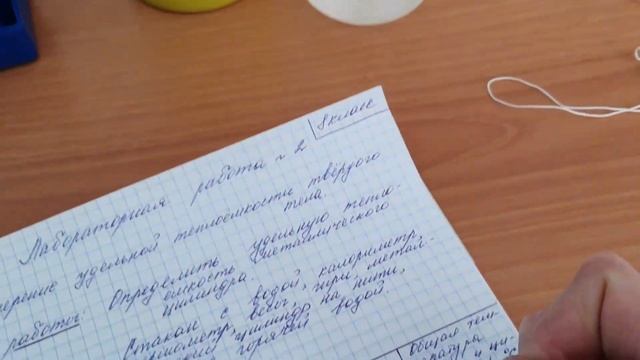 8 класс
Лабораторная работа № 2
мерение удельной теплоёмкости твёрдого
тела.
работы: Определить удельную тепло-
ёмкость металлического
цилиндра.
Стакан с водой, калориметр,
рмометр, весы, гири, метал-
цилиндр на нити,
горячей водой.
Общая тем-
пература